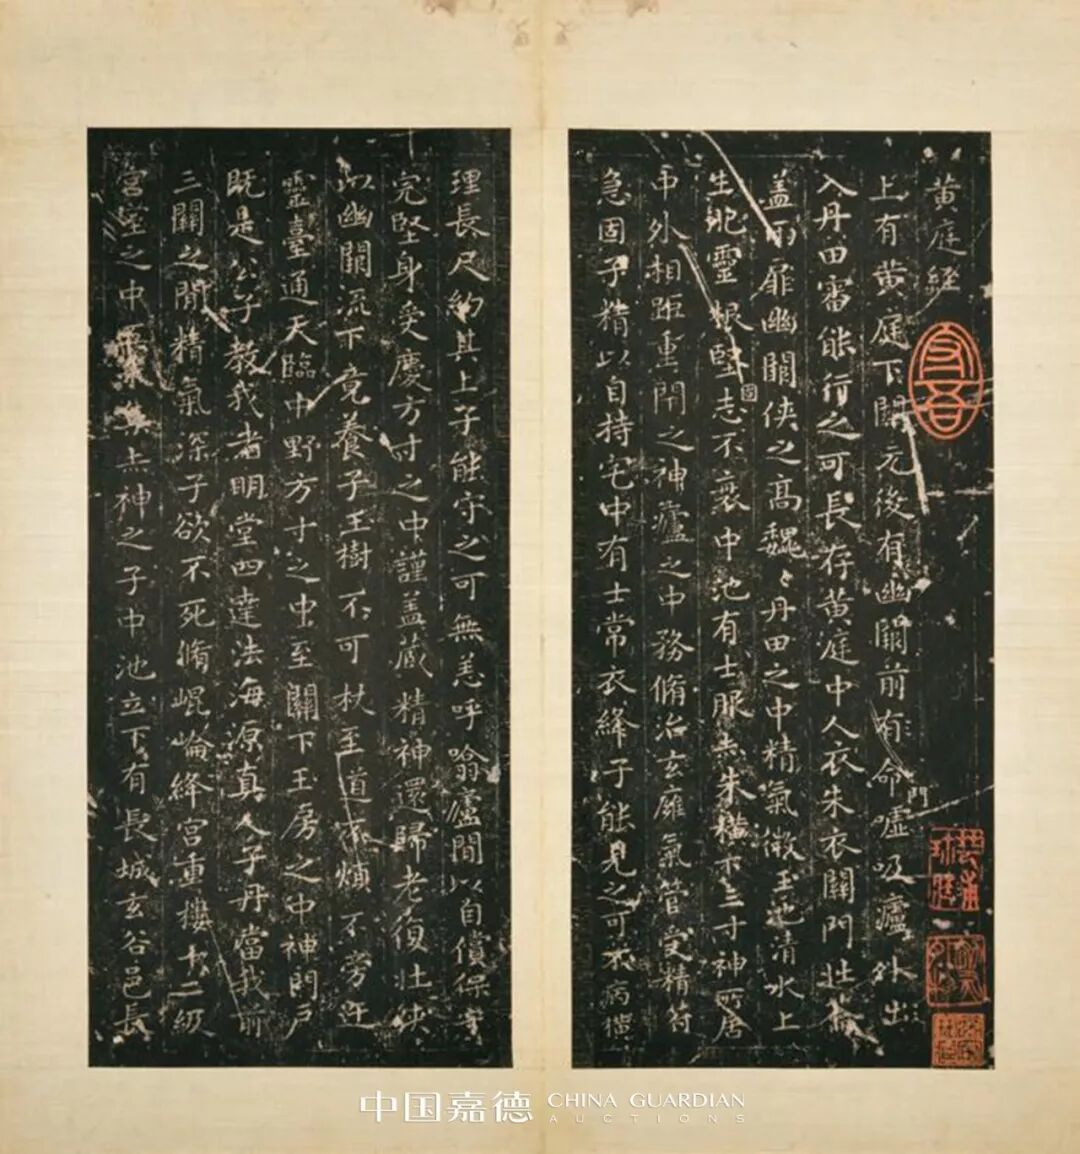 黄庭經
上有黄庭下關元後有幽闕前有命嘘吸廬外出
門
入丹田審能行之可長存黄庭中人衣朱衣關門壯籥
盖兩扉幽闕俠之高魏〻丹田之中精氣微玉池清水上
生肥靈根堅志不衰中池有士服赤朱橫下三寸神所居
固
中外相距重閇之神廬之中務脩治玄廱氣管受精符
急固子精以自持宅中有士常衣絳子能見之可不病橫
理長尺約其上子能守之可無恙呼噏廬間以自償保守
完堅身受慶方寸之中謹盖藏精神還歸老復壯俠
以幽闕流下竟養子玉樹不可杖至道不煩不旁迕
靈臺通天臨中野方寸之中至關下玉房之中神門戶
既是公子教我者明堂四達法海源真人子丹當我前
三關之間精氣深子欲不死脩崐崘絳宮重樓十二級
宮室之中五采集赤神之子中池立下有長城玄谷邑長
中国嘉德 CHINA GUARDIAN
AUCTIONS